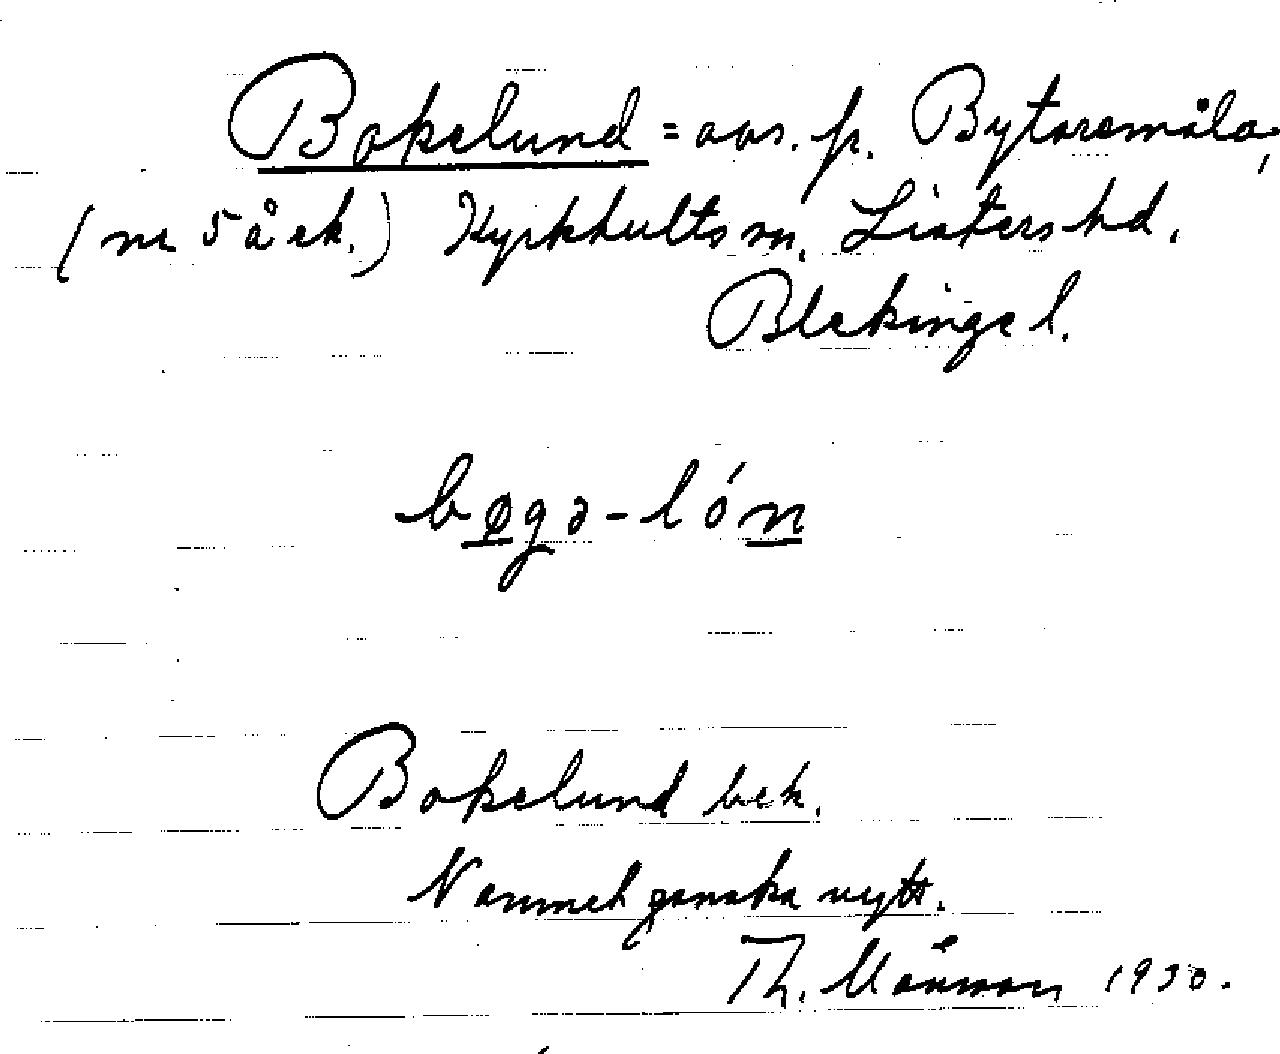 Bokelund = avs. fr. Bytaremåla,
(nr 5 å ek.) Kyrkhults sn. Listers hd.
Blekinge l.
bøgə-lón
Bokelund bek.
Namnet ganska nytt.
Th. 1930.